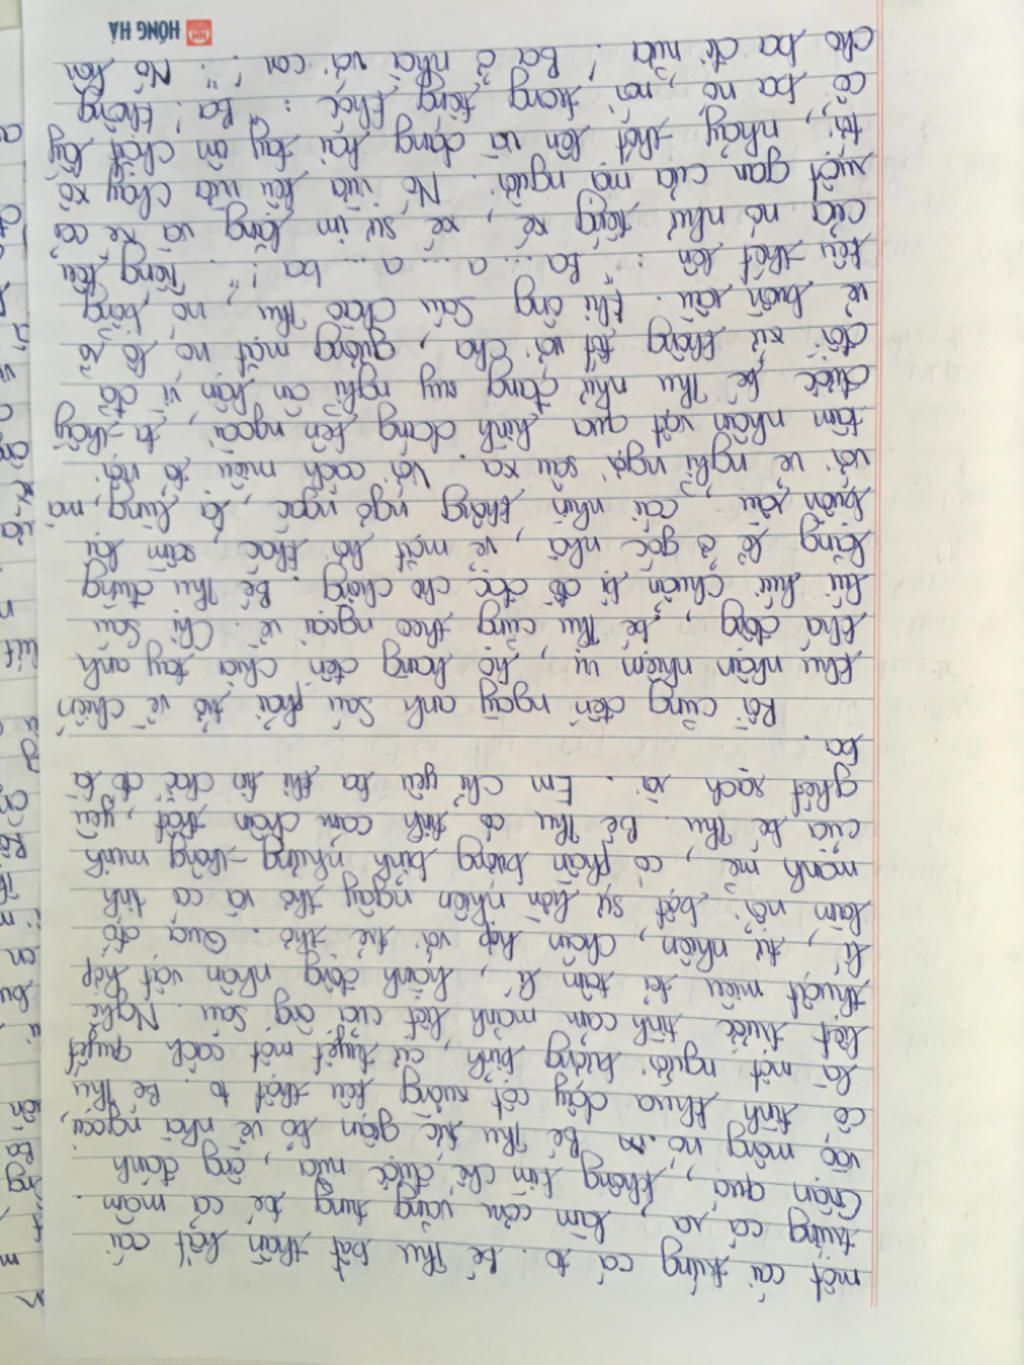 một cái trứng cá to. bé Thu bất thần hất cái
trứng cá ra, làm cơm văng tung toé cả mâm.
Giận quá, không kìm chế được nữa, ông đánh
vào mông nó, bé Thu tức giận bỏ về nhà ngoại,
cố tình khua dây cột xuồng kêu thật to. Bé Thu
là một người bướng bỉnh, cự tuyệt một cách quyết
liệt trước tình cảm mãnh liệt của ông Sáu. Nghệ
thuật miêu tả tâm lí, hành động nhân vật hợp
lí, tự nhiên, chân hợp với trẻ thơ. Qua đó
làm nổi bật sự hồn nhiên ngây thơ và cá tính
mạnh mẽ, có phần bướng bỉnh nhưng thông minh
của bé Thu. Bé Thu có tình cảm chân thật, yêu
ghét rạch ròi. Em chỉ yêu ba khi tin chắc đó là
ba.
Rồi cũng đến ngày anh Sáu phải trở về chiến
khu nhận nhiệm vụ, họ hàng đến chia tay anh
khá đông, bé Thu cũng theo ngoại về. Chị Sáu
lúi húi chuẩn bị đồ đạc cho chồng. Bé Thu đứng
lẳng lẽ ở góc nhà, vẻ mặt hơi khác sầm lại
buồn rầu, cái nhìn không ngơ ngác, lạ lùng, mà
với vẻ nghĩ ngợi sâu xa. Với cách miêu tả nội
tâm nhân vật qua hình dáng bên ngoài, ta thấy
được bé Thu như đang suy nghĩ ân hận vì đã
đối xử không tốt với cha, gương mặt nó lộ rõ
vẻ buồn rầu. Khi ông Sáu chào Thu, nó bỗng
kêu thét lên: "Ba... a... a... ba!". Tiếng kêu
của nó như tiếng xé, xé sự im lặng và xé cả
ruột gan của mọi người. Nó vừa kêu vừa chạy xô
tới, nhảy thót lên và dang hai tay ôm chặt lấy
cổ ba nó, nói trong tiếng khóc: "Ba! Không
cho ba đi nữa! Ba ở nhà với con!". Nó hôn
HỒNG HÀ